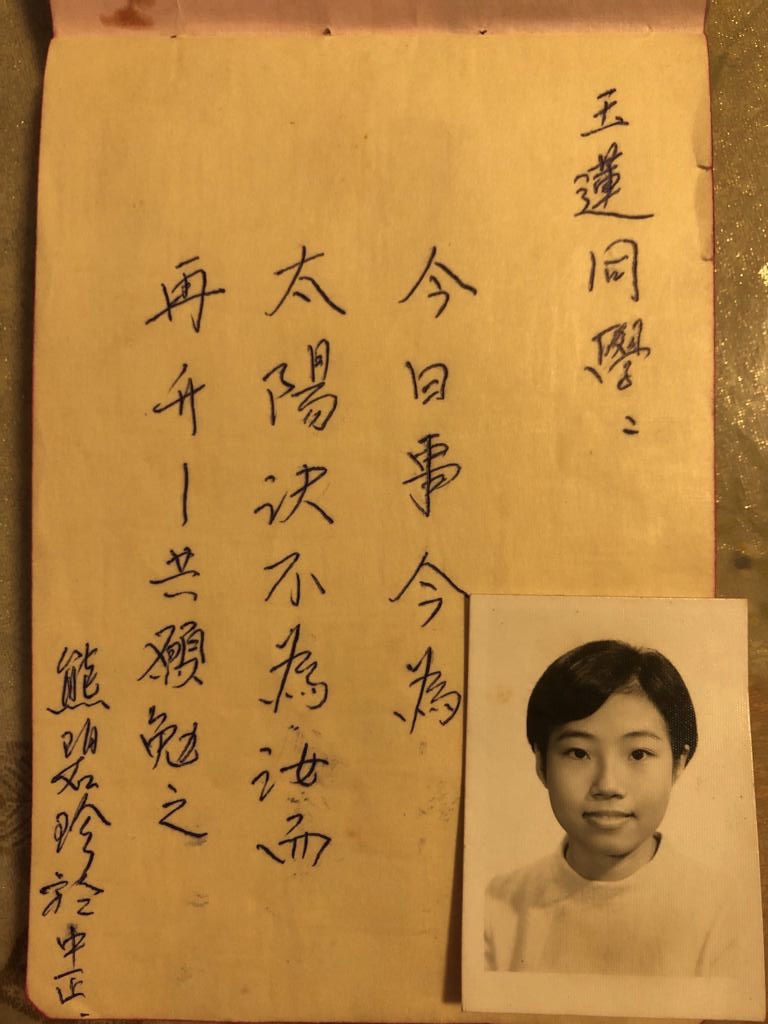 玉蓮同學：
今日事今為
太陽決不為汝而
再升—共願勉之
熊碧珍於中正.